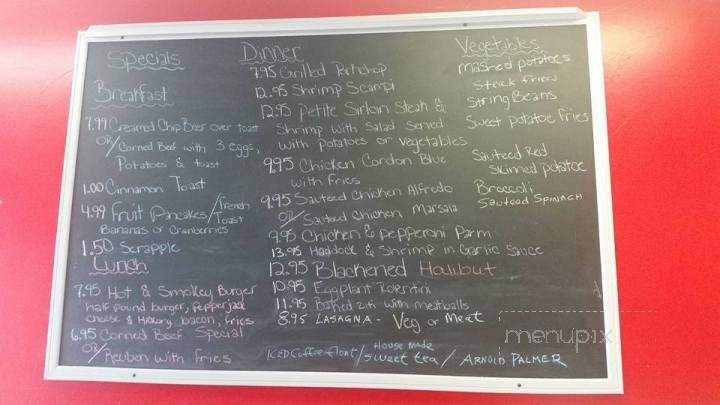 Specials
Breakfast
7.99 Creamed Chip Beef over toast
OR/ Corned Beef with 3 eggs,
Potatoes & toast
1.00 Cinnamon Toast
4.99 Fruit Pancakes/French Toast
Bananas or Cranberries
1.50 Scrapple
Lunch
7.95 Hot & Smokey Burger
half pound burger, Pepperjack
cheese & Hickory bacon, fries
6.95 Corned Beef Special
OR/ Reuben with Fries
Dinner
7.95 Grilled Porkchop
12.95 Shrimp Scampi
12.95 Petite Sirloin Steak &
Shrimp with Salad Served
with potatoes or vegetables
9.95 Chicken Cordon Blue
with fries
9.95 Sauteed Chicken Alfredo
OR/ Sauteed Chicken Marsala
9.95 Chicken & pepperoni Parm
13.95 Haddock & Shrimp in Garlic Sauce
12.95 Blackened
10.95 Eggplant
11.95 Baked ziti with meatballs
8.95 LASAGNA - Veg or Meat
ICED Coffee float/ House made sweet tea / ARNOLD PALMER
Vegetables
mashed potatoes
Steak fries
String Beans
Sweet potatoe fries
Sauteed Red
Skinned potatoe
Broccoli
Sauteed SPINACH
menupix